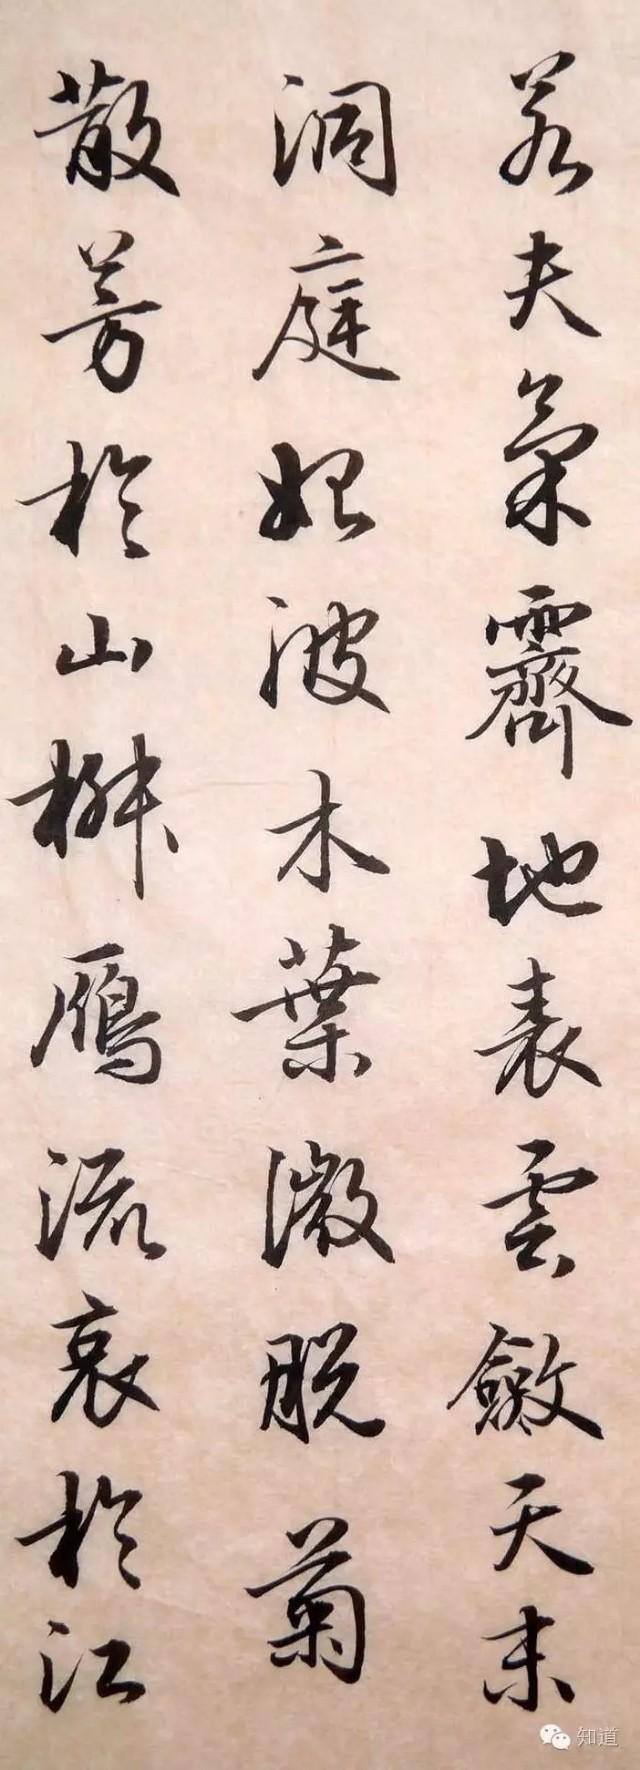 若夫氣霽地表雲斂天末
洞庭始波木葉微脫菊
散芳於山椒雁流哀於江
知道